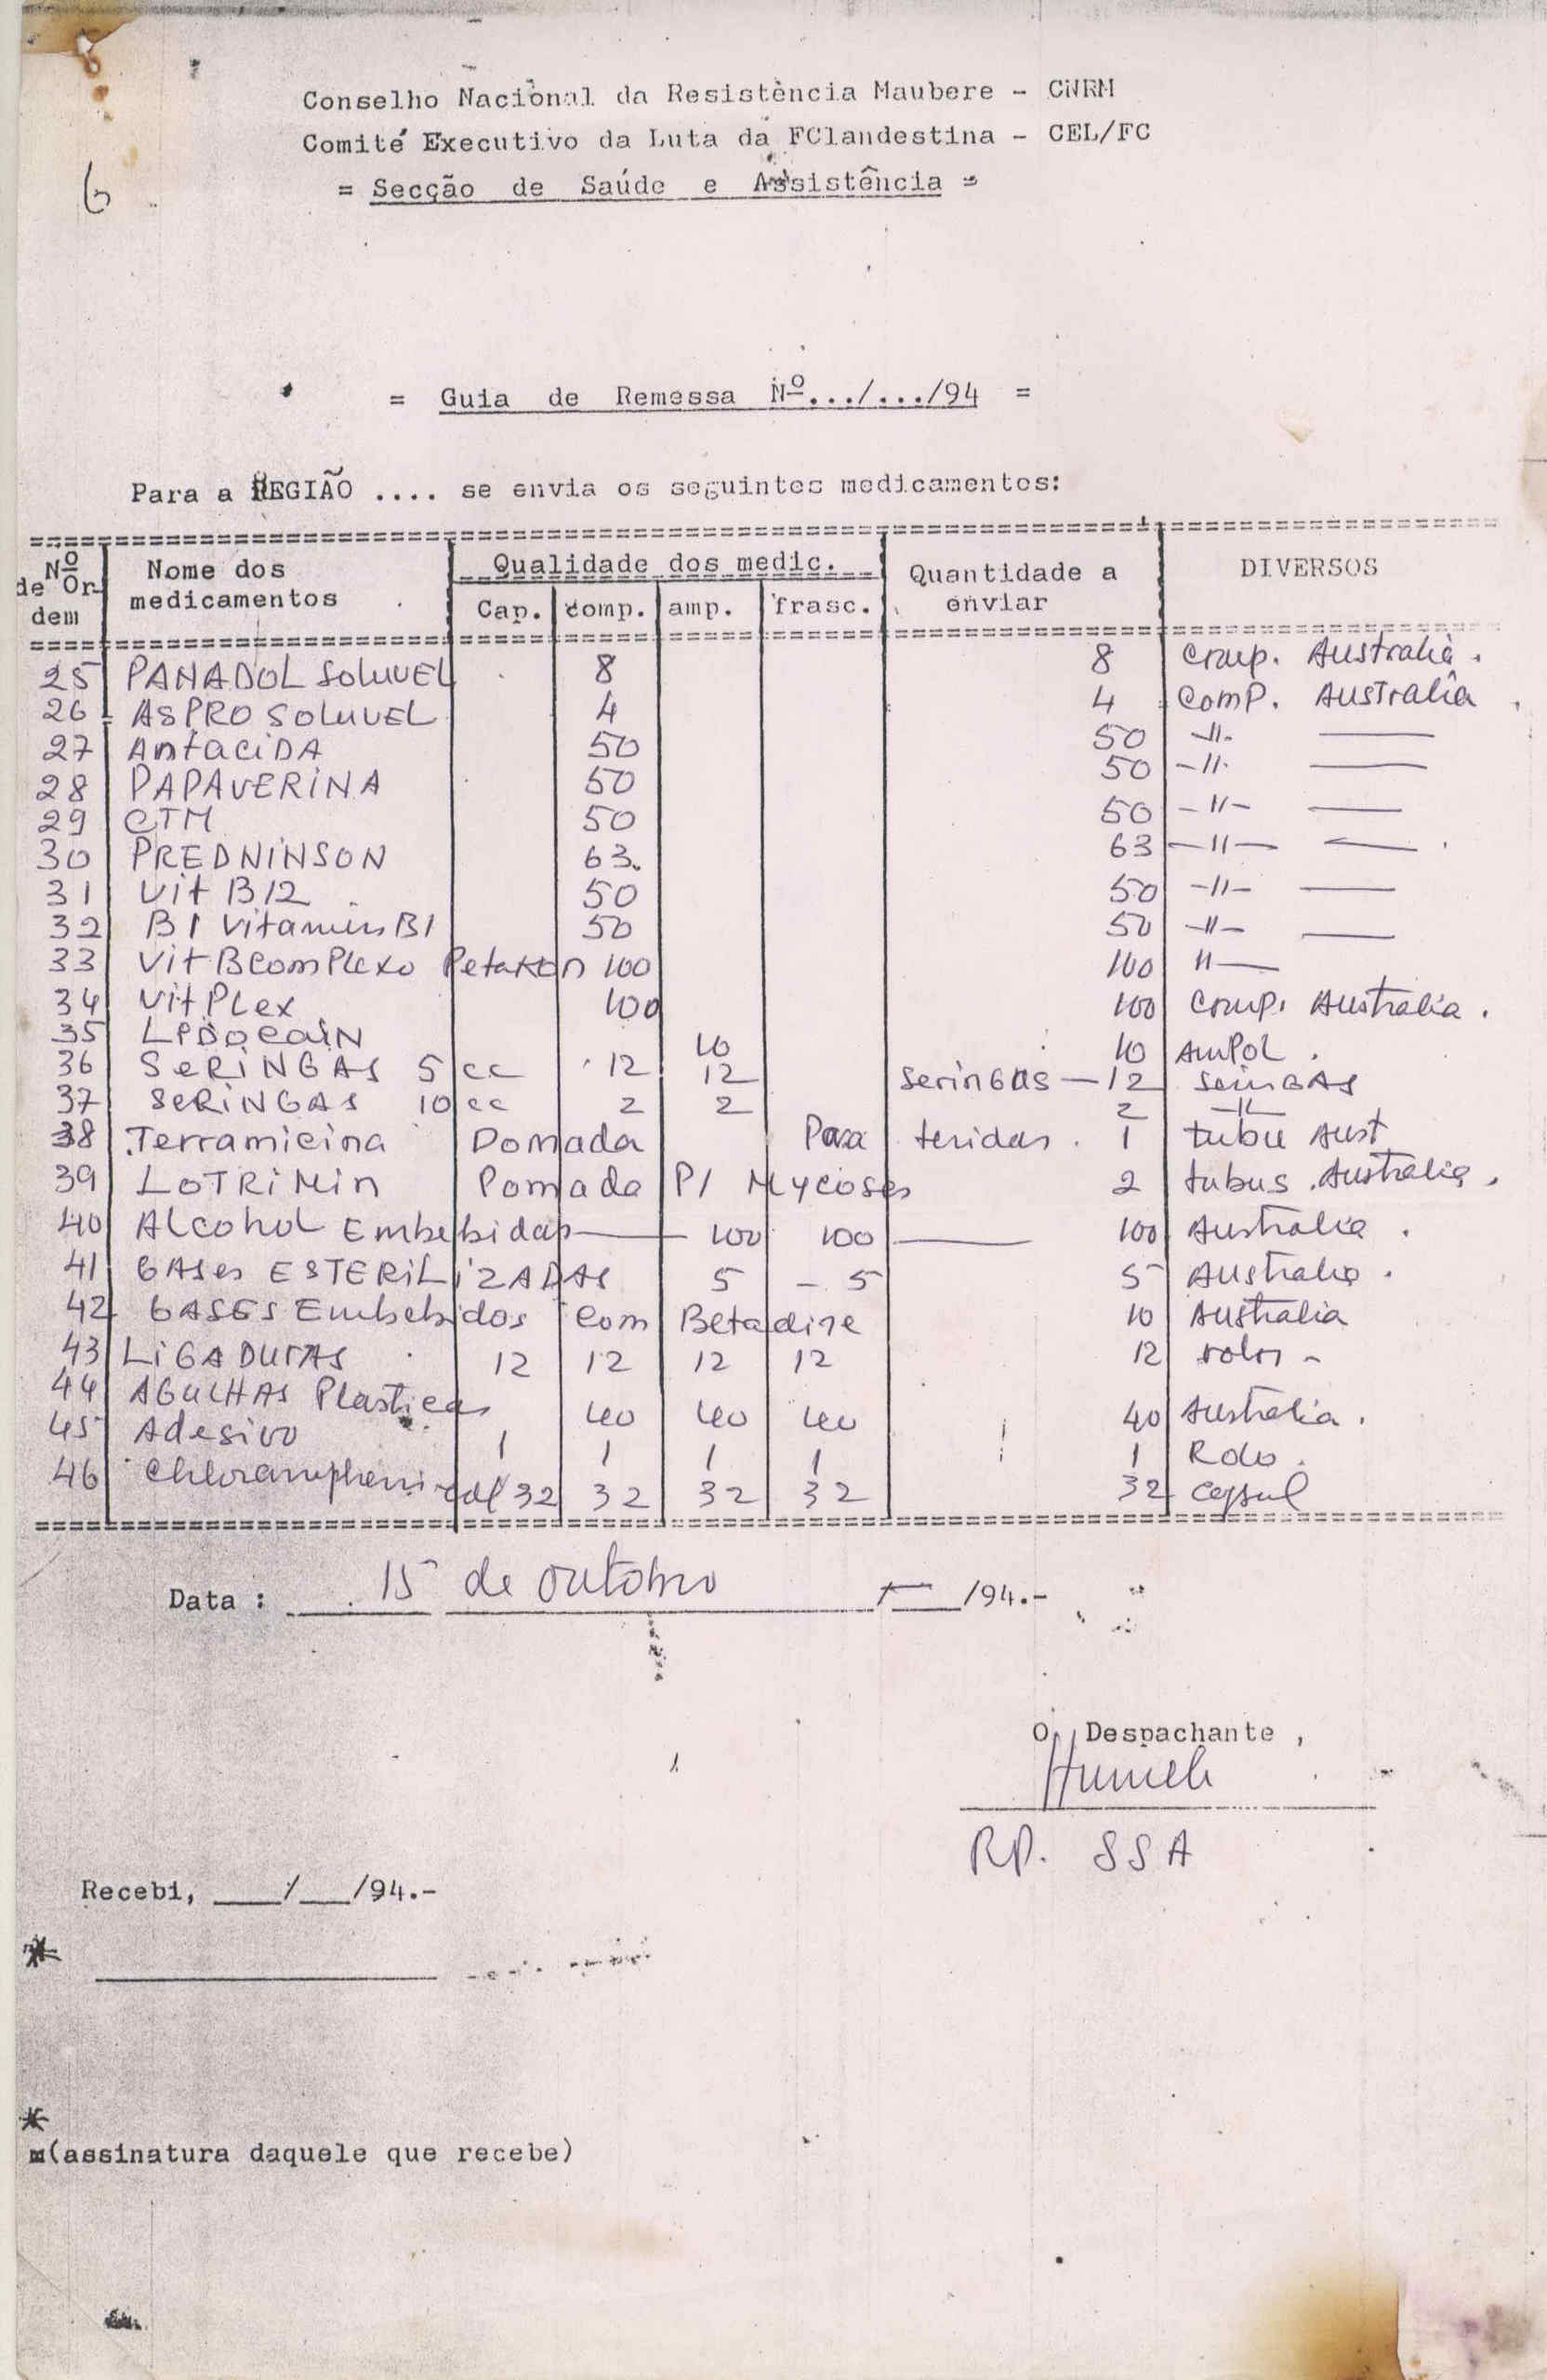 Conselho Nacional da Resistência Maubere - CNRM
Comité Executivo da Luta da FClandestina - CEL/FC
= Secção de Saúde e Assistência =
6
= Guia de Remessa Nº.../.../94 =
Para a REGIÃO .... se envia os seguintes medicamentos:
Nº de Or- dem Nome dos medicamentos Qualidade dos medic. Quantidade a enviar DIVERSOS
Cap. comp. amp. frasc.
25 PANADOL SOLUVEL 8 8 comp. Australia.
26 - ASPRO SOLUVEL 4 4 comp. Australia.
27 AntaciDA 50 50 -11- ——
28 PAPAVERINA 50 50 -11- ——
29 CTM 50 50 -11- ——
30 PREDNINSON 63 63 -11- ——
31 Vit B12 50 50 -11- ——
32 B1 Vitamin B1 50 50 -11- ——
33 Vit BcomPlexo 100 100 11 —
34 VitPlex 100 100 comp. Australia.
35 10 10 AmPol.
36 SERINGAS 5 cc 12 12 SerinGas — 12 seinGAS
37 SERINGAS 10 cc 2 2 2 -11-
38 Terramicina Pomada Para feridas. 1 tubu Aust
39 LOTRiMin Pomada P/ Mycoses 2 tubus. Australia.
40 Alcohol Embebidas —— 100 100 —— 100 Australia.
41 GAses ESTERILIZADAS 5 - 5 5 Australia.
42 GASES Embebidos com Betadine 10 Australia
43 LiGADURAS 12 12 12 12 12 rolos -
44 AGULHAS Plasticas 40 40 40 40 Australia.
45 Adesivo 1 1 1 1 1 Rolo.
46 Chloramphenicol 32 32 32 32 32 Capsul
Data : 15 de outobro / /94.-
O Despachante ,
RP. SSA
Recebi, ___/___/94.-
*
*
(assinatura daquele que recebe)